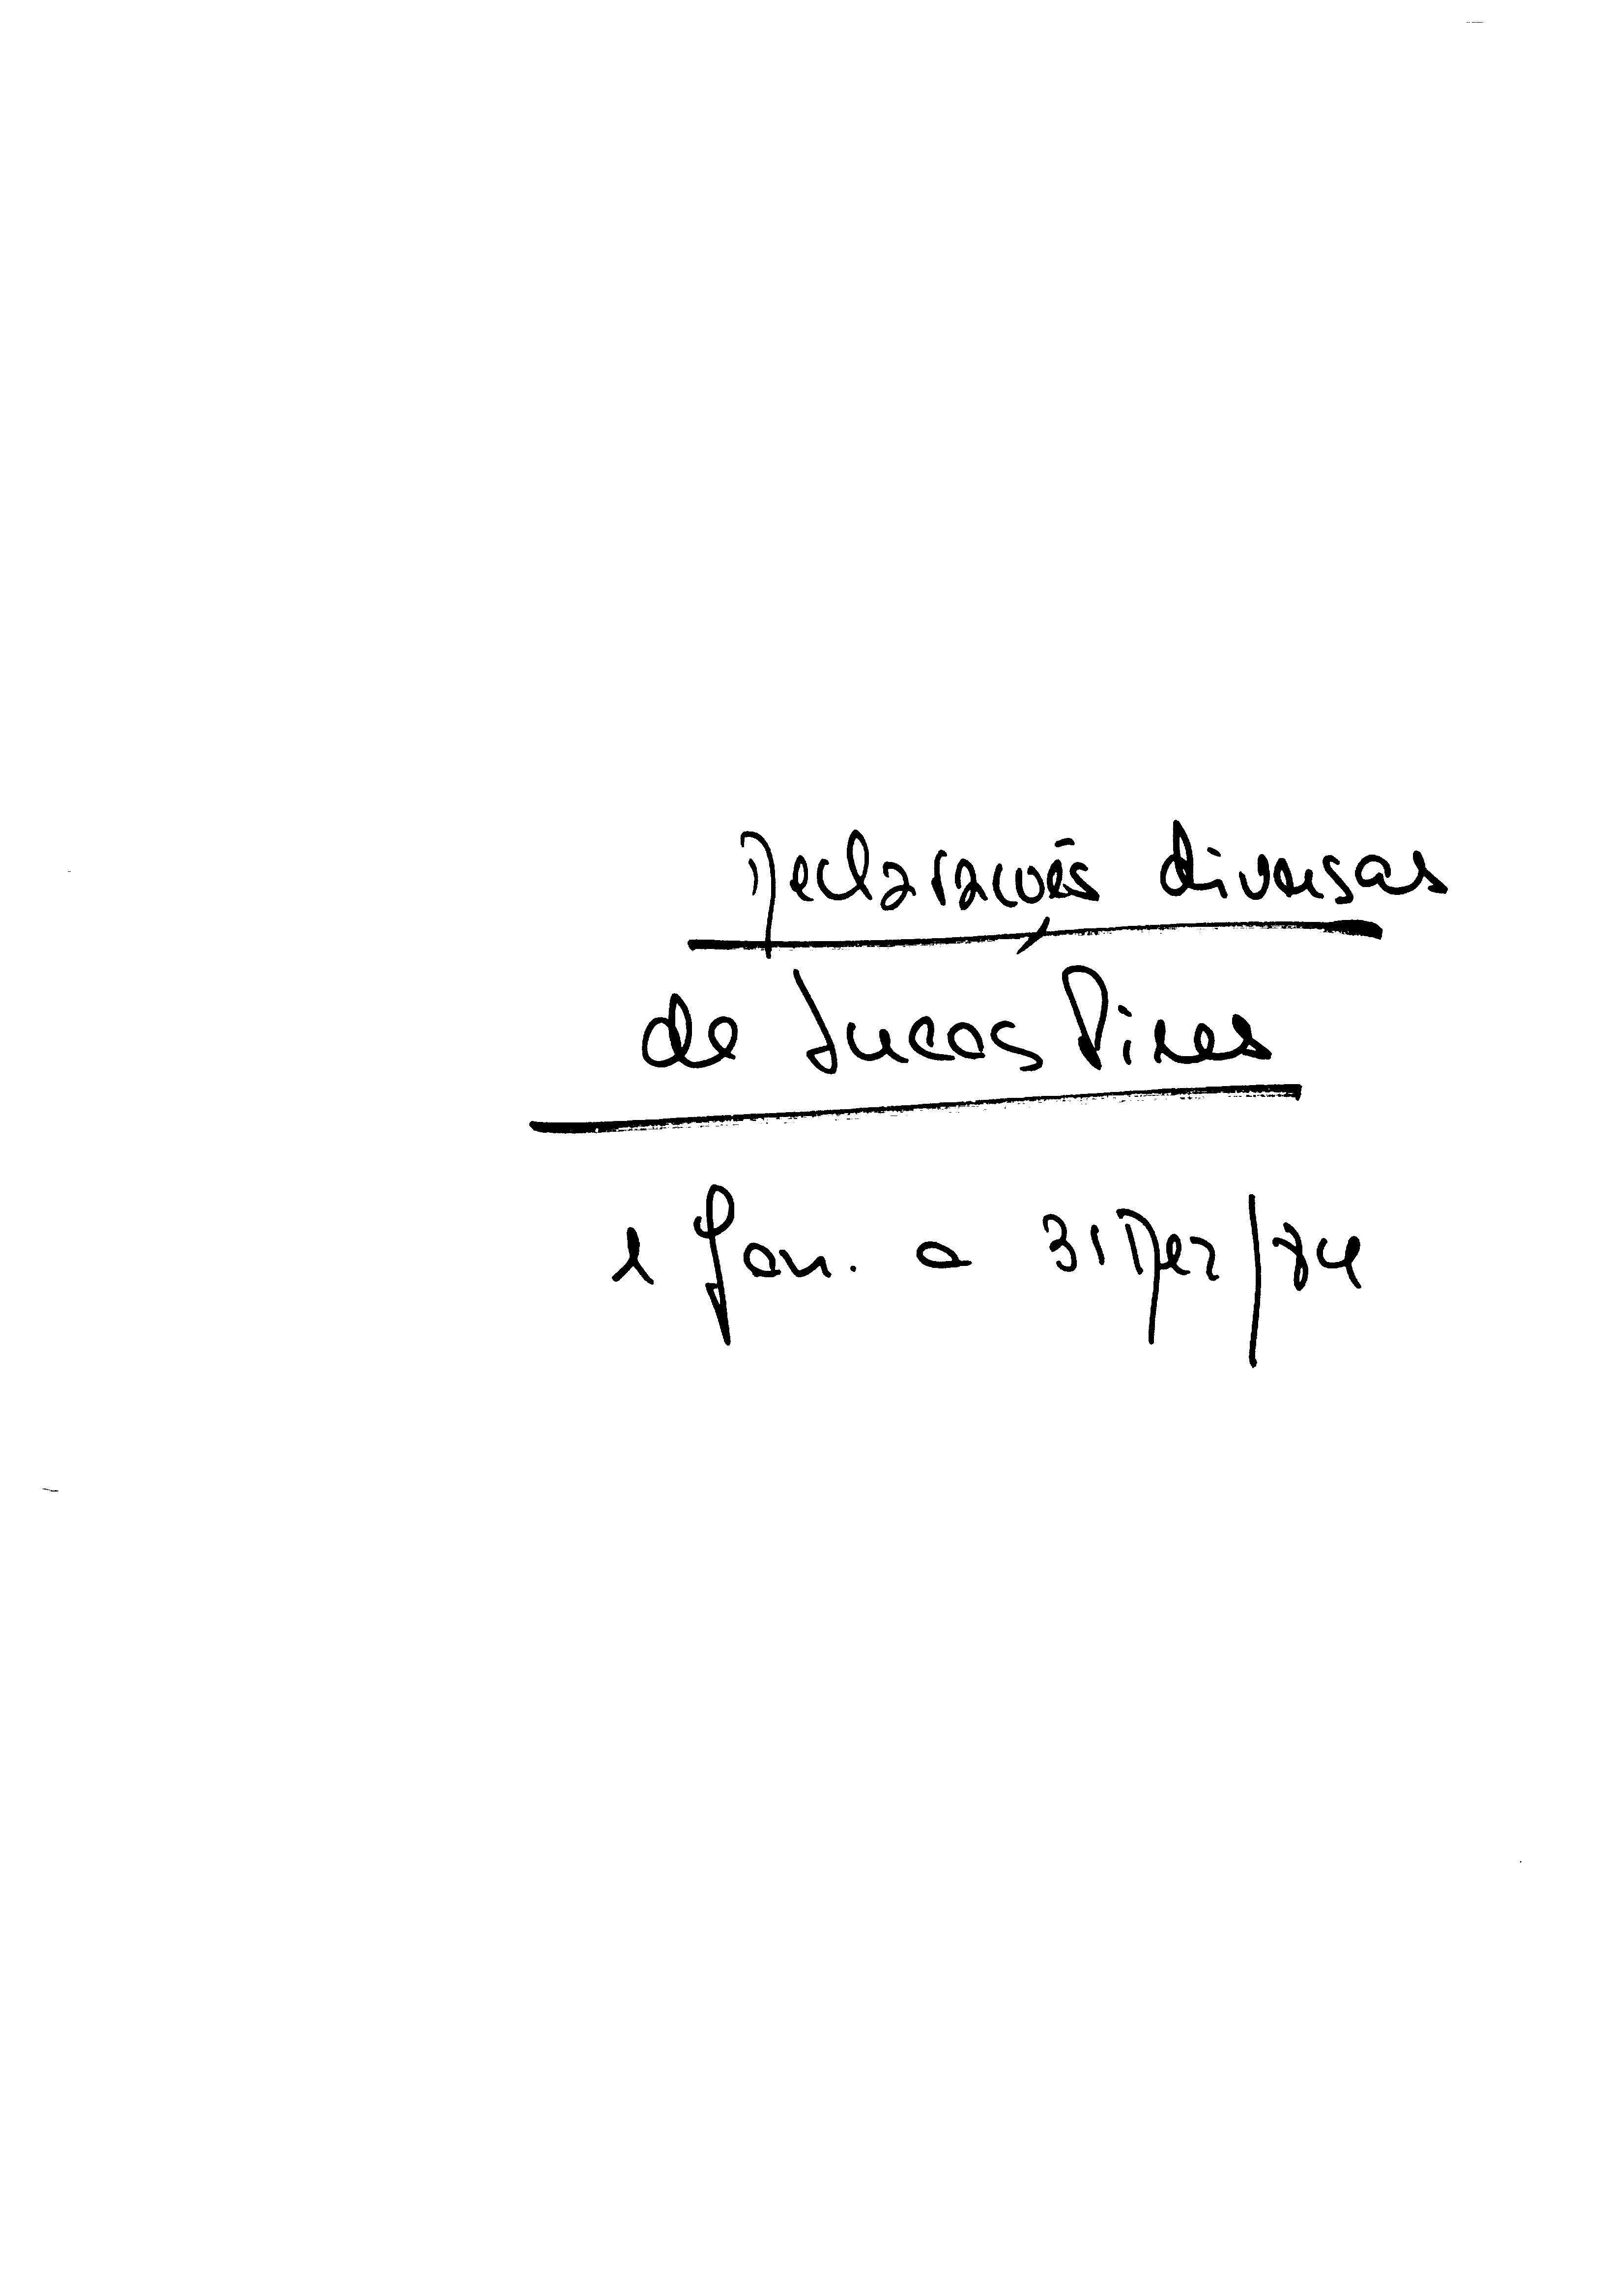 Declarações diversas
de Lucas Pires
1 Jan. a 31 Dez/84